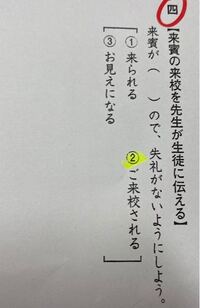 四
【来賓の来校を先生が生徒に伝える】
来賓が（　　）ので、失礼がないようにしよう。
①来られる　②ご来校される
③お見えになる